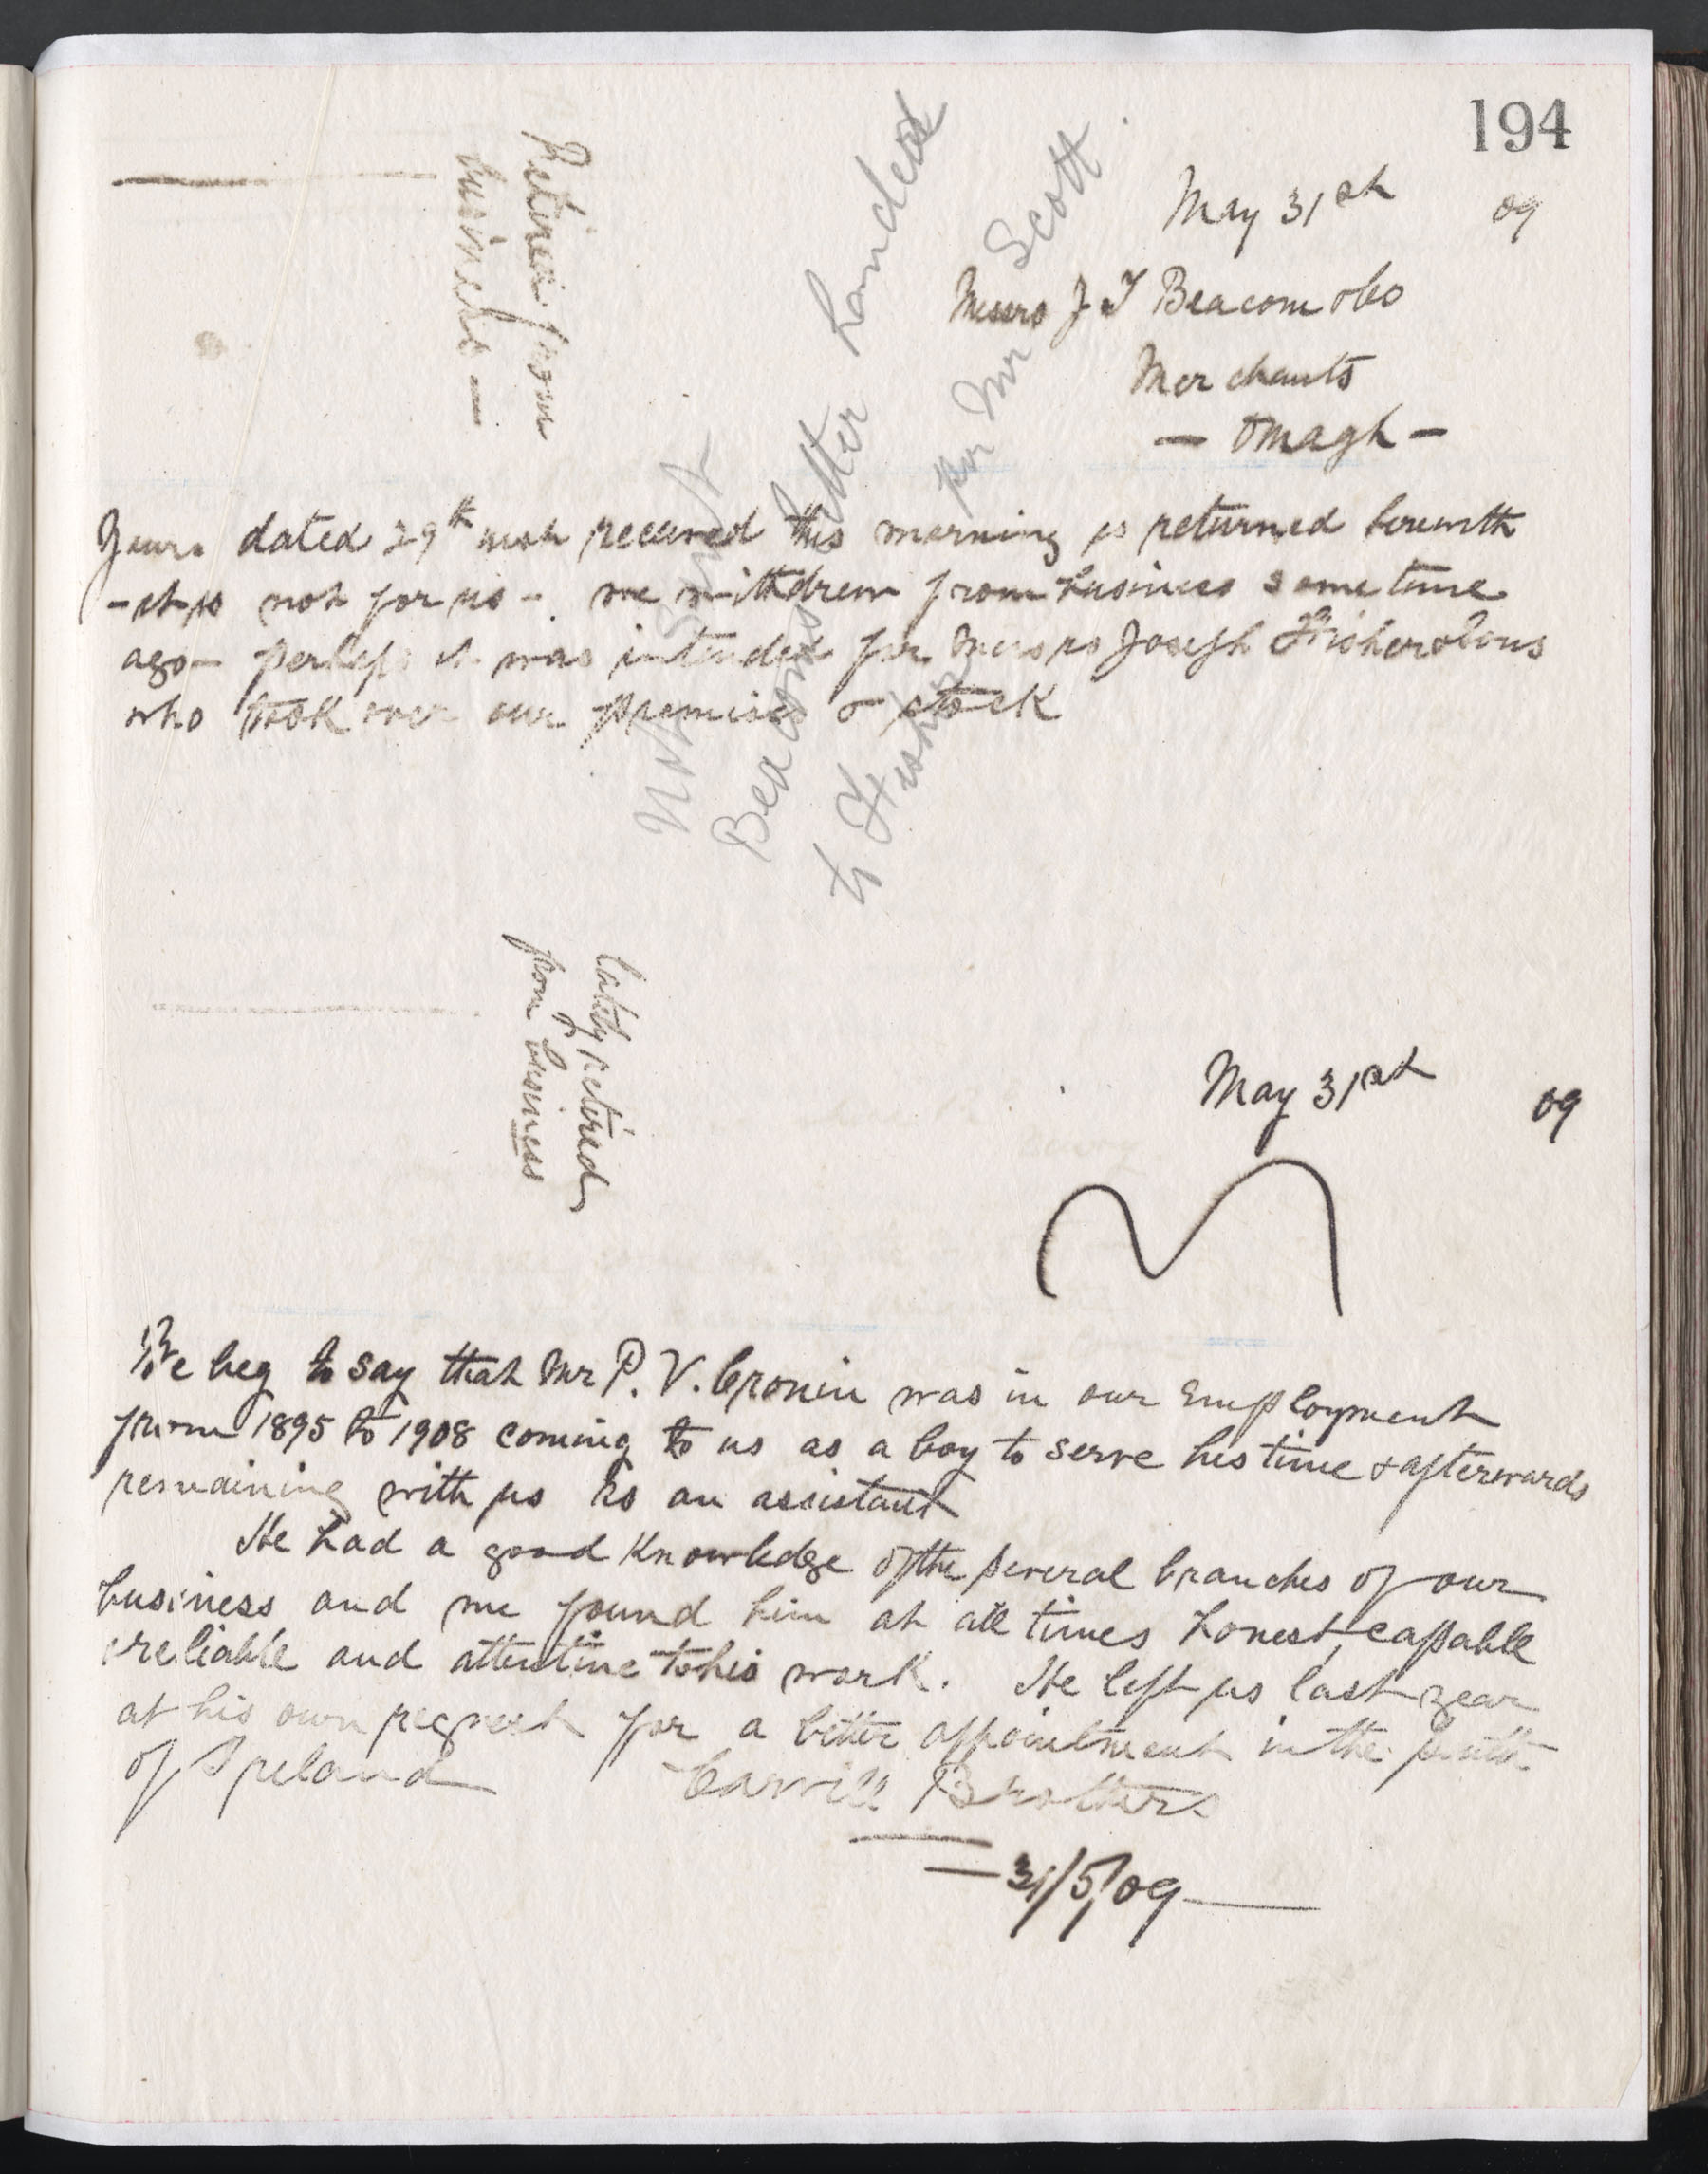 194
Retired from
business —
May 31st 09
Messrs J T Beacom & Co
Merchants
— Omagh —
Yours dated 29th inst received this morning is returned herewith
- it is not for us - we withdrew from business some time
ago - perhaps it was intended for Messrs Joseph Fisher & Sons
who took over our premises & stock
Beacoms letter handed
to Fishers per Mr Scott.
Lately retired
from business
May 31st 09
We beg to say that Mr P. V. Cronin was in our Employment
from 1895 to 1908 coming to us as a boy to serve his time & afterwards
remaining with us as an assistant
He had a good Knowledge of the several branches of our
business and we found him at all times honest, capable
reliable and attentive to his work. He left us last year
at his own request for a better appointment in the south
of Ireland Carvill Brothers
— 31/5/09 —